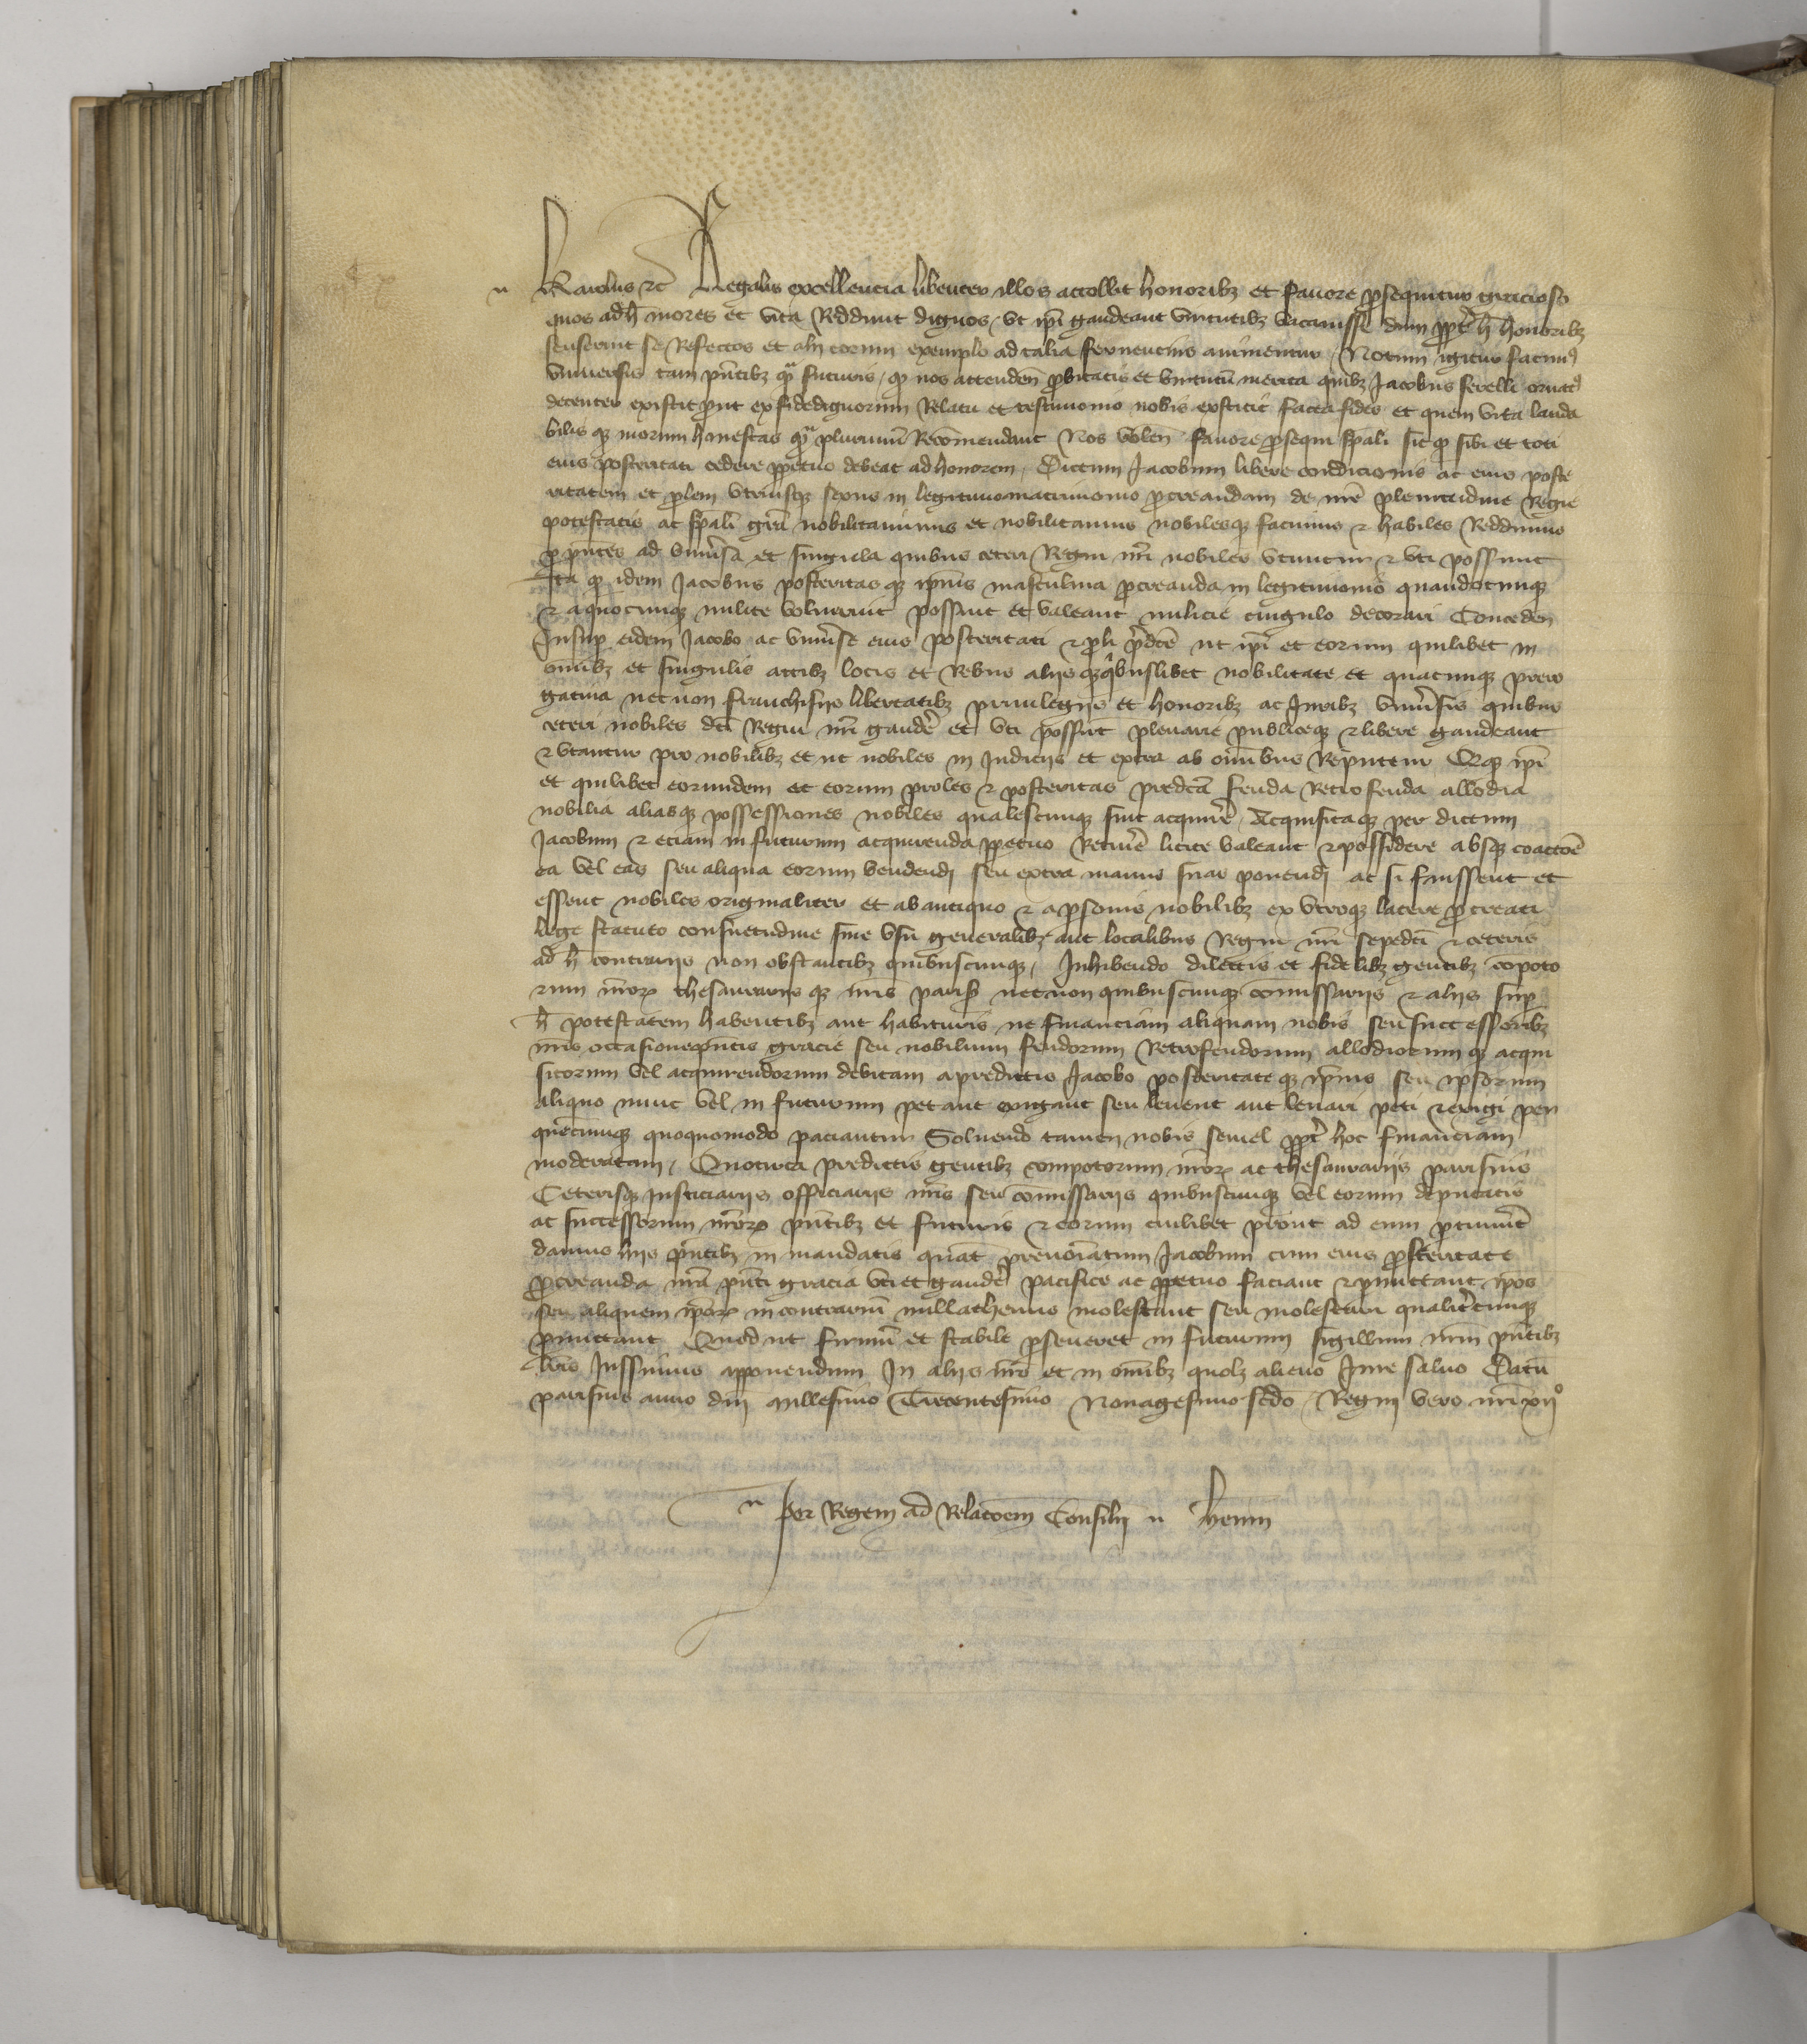 Karolus etc Regalis excellencia libenter illos attollit honoribz et favore prosequitur gracioso
quos ad h mores et vita Reddunt dignos, vt ipi gaudeant virtutibz vacavisse dum ppt h honoribz
senserint se Refectos et alii eorum exemplo ad talia ferventius animentur, Notum igitur facim9
vniversis tam pntibz qa futuris, q nos attenden probitatis et virtutu merita quibz Jacobus Ferelli ornat9
decenter existit put ex fidedignorum Relatu et testimonio nobis exstitit facta fides et quem vita lauda
bilis q morum honestas qa plurimu Recomendant Nos volen favore prosequi spali sic q sibi et toti
eius posteritati cedere ppetuo debeat ad honorem, Dictum Jacobum libere condicionis ac eius poste
ritatem et prolem vtriusq sexus in legitimo matrimonio procreandam de nre plenitudine Regie
potestatis ac spali gra nobilitavimus et nobilitamus nobilesq facimus et habiles Reddimus
p pntes ad vniusa et singula quibus ceteri Regni nri nobiles vtuntur et vti possunt
Ita q idem Jacobus posteritas q ipius masculina procreanda in legitimonio quandocunq
et a quocunq milite voluerint possint et valeant milicie cingulo decorari Conceden
Insup eidem Jacobo ac vniuse eius posteritati et proli predce ut ipi et eorum quilibet in
omibz et singulis actibz locis et Rebus aliis quibuslibet nobilitate et quacunq prero
gativa necnon franchisiis libertatibz privilegiis et honoribz ac Juribz vniusis quibus
ceteri nobiles dci Regni nri gaude et vti possut plenarie publiceq et libere gaudeant
et vtantur pro nobilibz et ut nobiles in Judiciis et extra ab omibus Reputent Qq ipi
et quilibet eorundem et eorum proles et posteritas predca feuda Retrofeuda allodia
nobilia aliasq possessiones nobiles qualescunq sint acquire, Acquisitaq per dictum
Jacobum et eciam in futurum acquirenda ppetuo Retine licite valeant et possidere absq coactoe
ea vel eas seu aliqua eorum vendendi seu extra manus suas ponendi ac si fuissent et
essent nobiles originaliter et ab antiquo et a psonis nobilibz ex vtroq latere procreati
lege statuto consuetudine sive vsu generalibz aut localibus Regni nri sepedci et ceteris
ad h contrariis non obstantibz quibuscunq, Inhibendo dilectis et fidelibz gentibz copoto
rum nror thesaurariis q nris paris necnon quibuscunq comissariis et aliis sup
h potestatem habentibz aut habituris ne financiam aliquam nobis seu successoribz
nris occasione pntis gracie seu nobilium feudorum Retrofeudorum allodiorum q acqui
sitorum vel acquirendorum debitam a predictis Jacobo posteritate q ipius seu ipsorum
aliquo nunc vel in futurum petant exigant seu levent aut levari peti et exigi per
quecunq quoquomodo paciantur Solvendo tamen nobis semel ppt hoc financiam
moderatam, Quocirca predictis gentibz compotorum nror ac thesaurariis parisius
Ceterisq Justiciariis officiariis nris seu comissariis quibuscunq vel eorum deputatis
ac successorum nror pntibz et futuris et eorum cuilibet prout ad eum ptinuit
damus hiis pntibz in mandatis quat prenoiatum Jacobum cum eius posteritate
procreanda nra pnti gracia vti et gaude pacifice ac ppetuo faciant et pmittant ipos
seu aliquem ipor in contrariu nullathenus molestant seu molestari qualitcunq
pmittant Quod ut firmu et stabile pseveret in futurum sigillum nrm pntibz
lris Jussimus apponendum In aliis nro et in omibz quolz alieno Jure salvo Datu
parisius anno dni millesimo Trecentesimo Nonagesimo scdo, Regni vero nri xii°
Per Regem ad Relacoem Consilii Henin